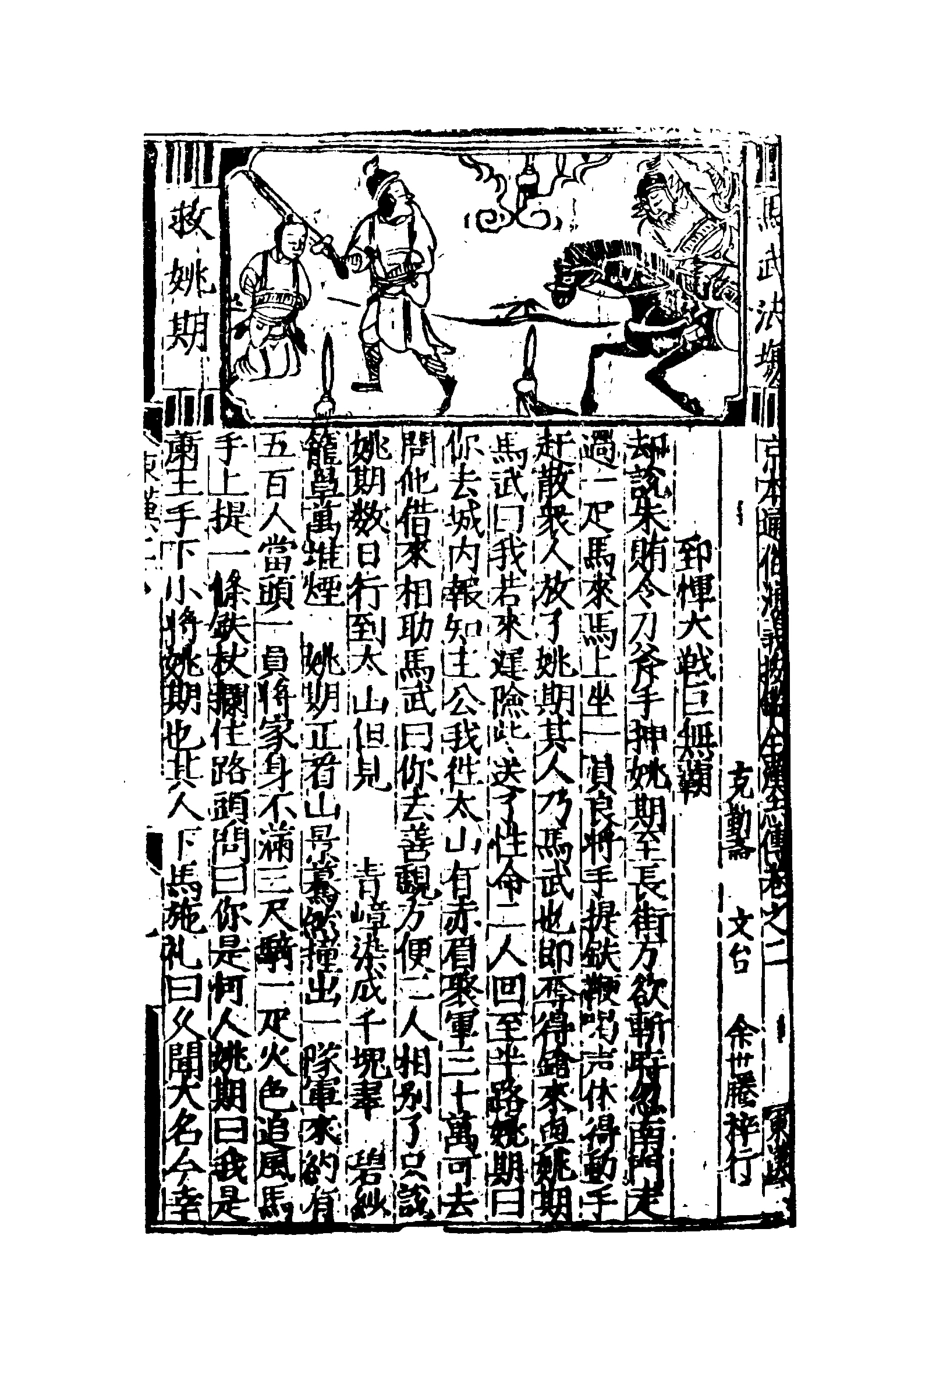 馬武法塲
救姚期
京本通俗演義按鑑全漢志傳卷之二
克勤齋 文台 余世騰梓行
郅惲大戰巨無霸
却說朱鮪令刀斧手押姚期至長街方欲斬時忽南門走
過一疋馬來馬上坐一員良將手提鉄鞭喝声休得動手
赶散衆人放了姚期其人乃馬武也即奪得鎗來與姚期
馬武曰我若來遲險些送了性命二人回至半路姚期曰
你去城内報知主公我徃太山有赤眉聚軍三十萬可去
問他借來相助馬武曰你去善覷方便二人相别了只說
姚期数日行到太山但見 青嶂染成千塊翠 碧紗
籠罩萬堆煙 姚期正看山景驀然撞出一隊軍來約有
五百人當頭一員將家身不滿三尺騎一疋火色追風馬
手上提一條鉄杖攔住路頭問曰你是何人姚期曰我是
蕭王手下小將姚期也其人下馬施礼曰久聞大名今幸